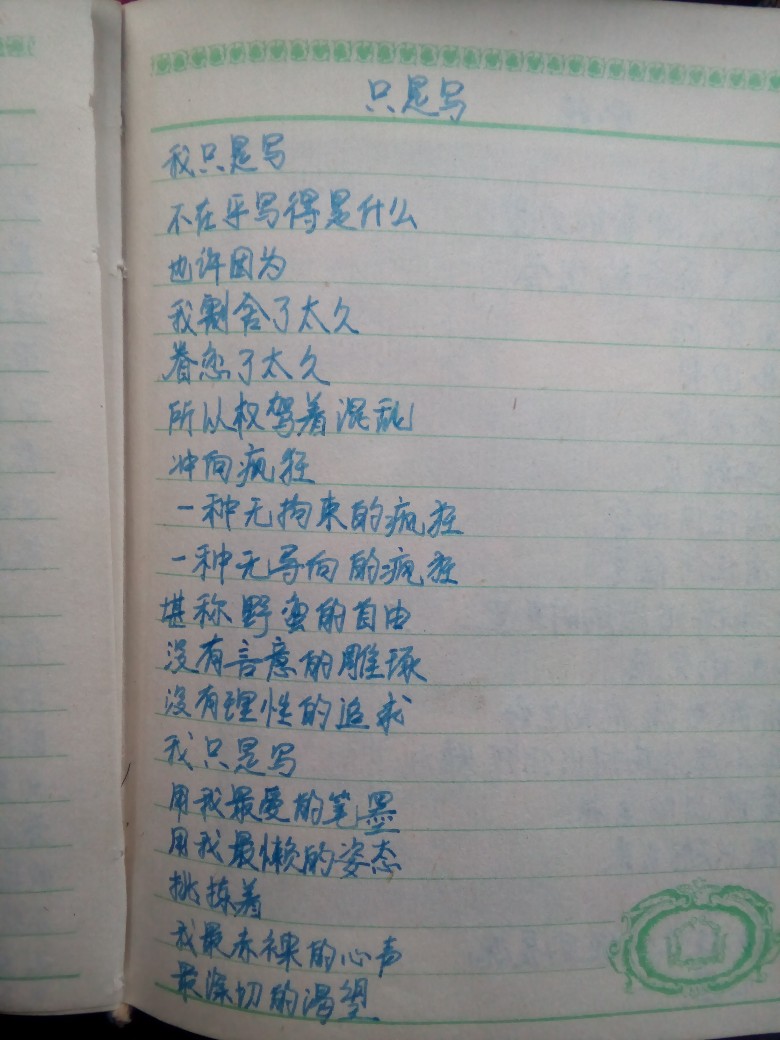 只是写
我只是写
不在乎写得是什么
也许因为
我割舍了太久
眷恋了太久
所以权驾着混乱
冲向疯狂
一种无拘束的疯狂
一种无导向的疯狂
堪称野蛮的自由
没有言意的雕琢
没有理性的追求
我只是写
用我最爱的笔墨
用我最懒的姿态
挑拣着
我最赤裸的心声
最深切的渴望